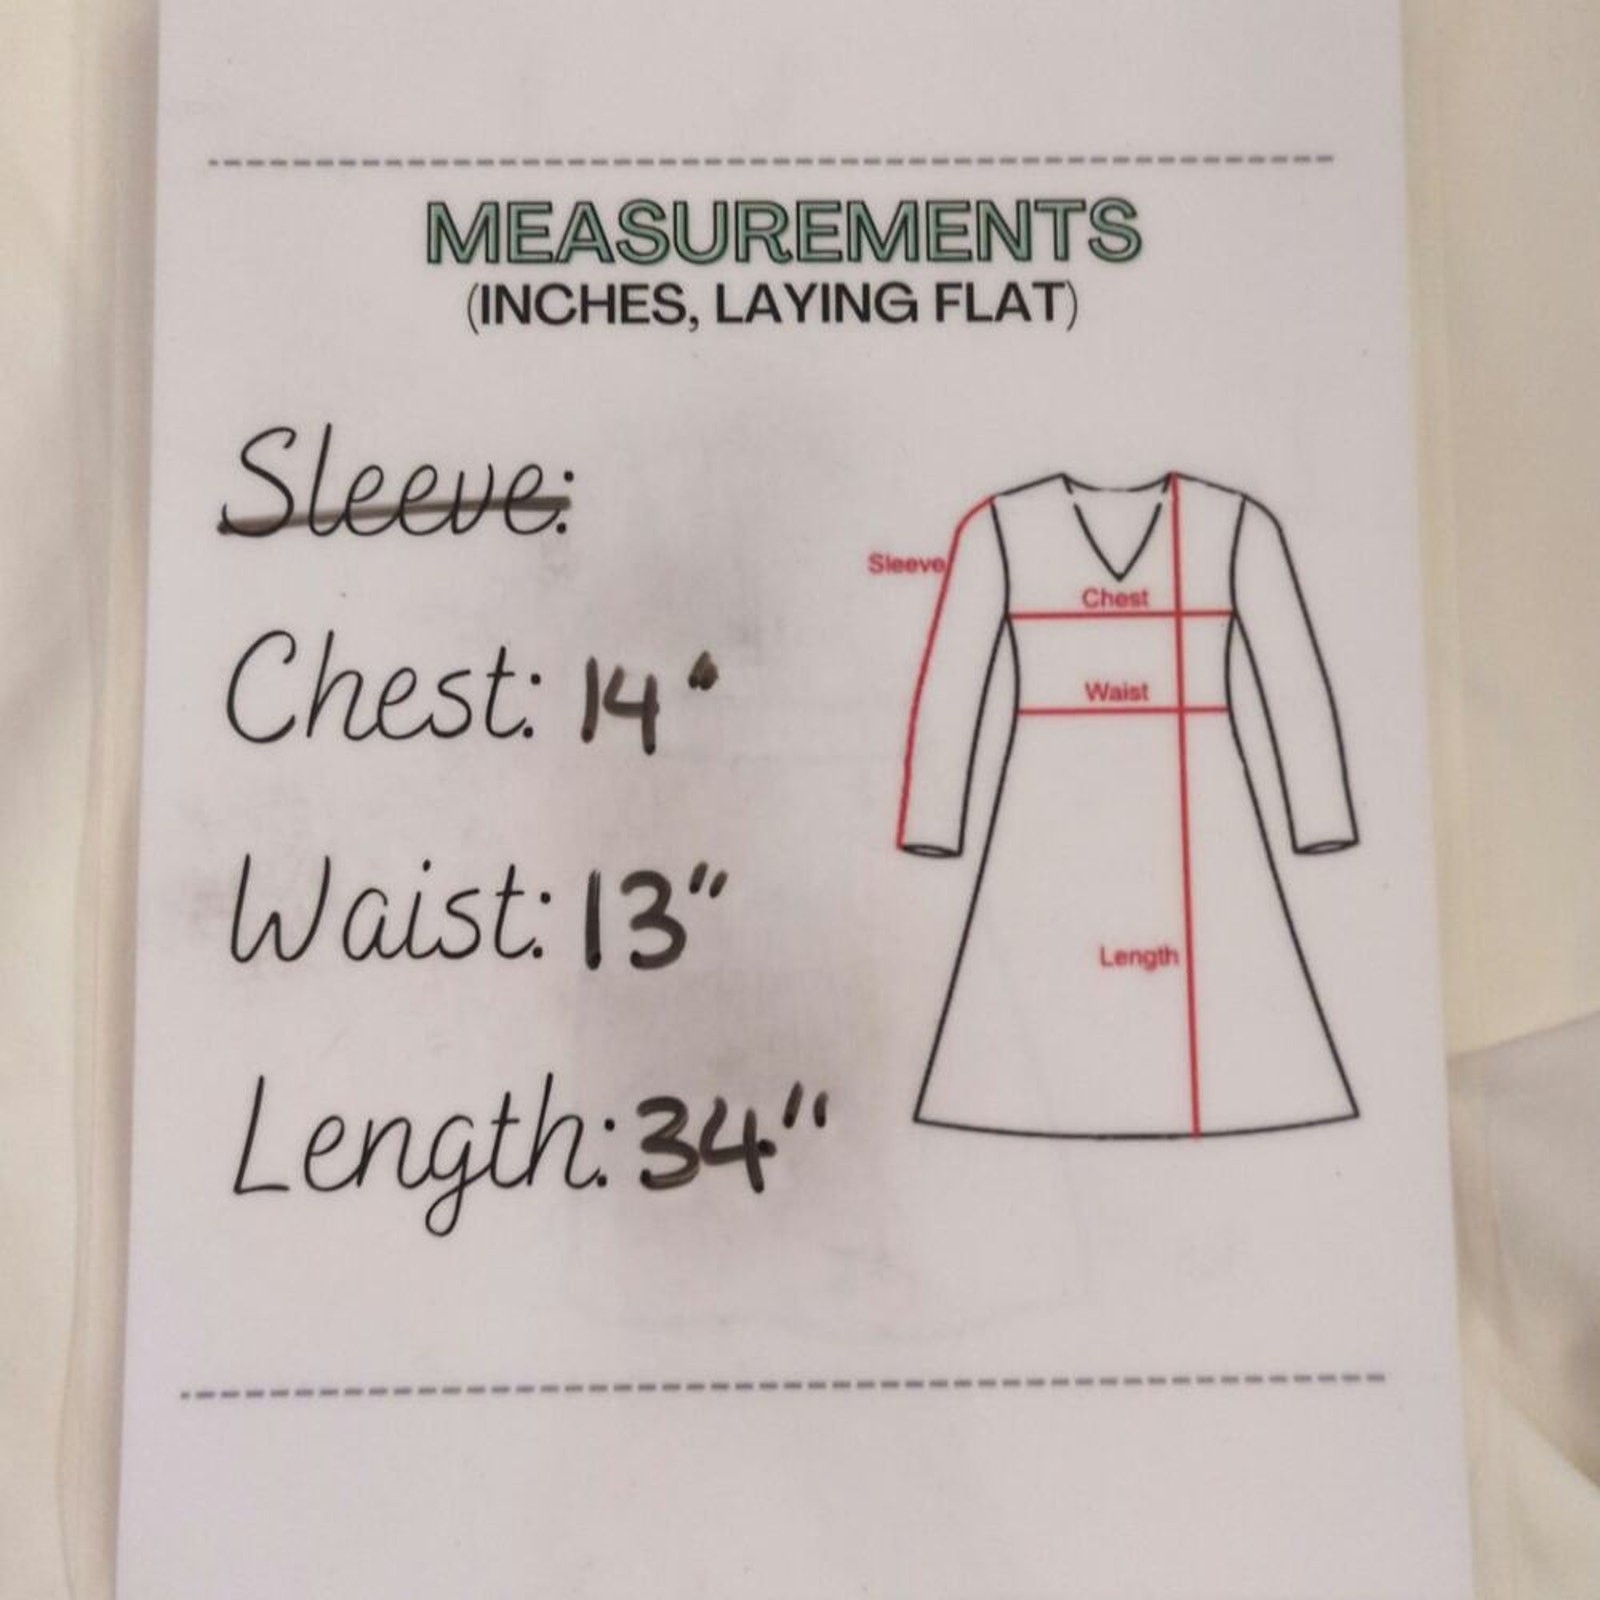 MEASUREMENTS
(INCHES, LAYING FLAT)
Sleeve:
Chest: 14"
Waist: 13"
Length: 34"
Sleeve
Chest
Waist
Length